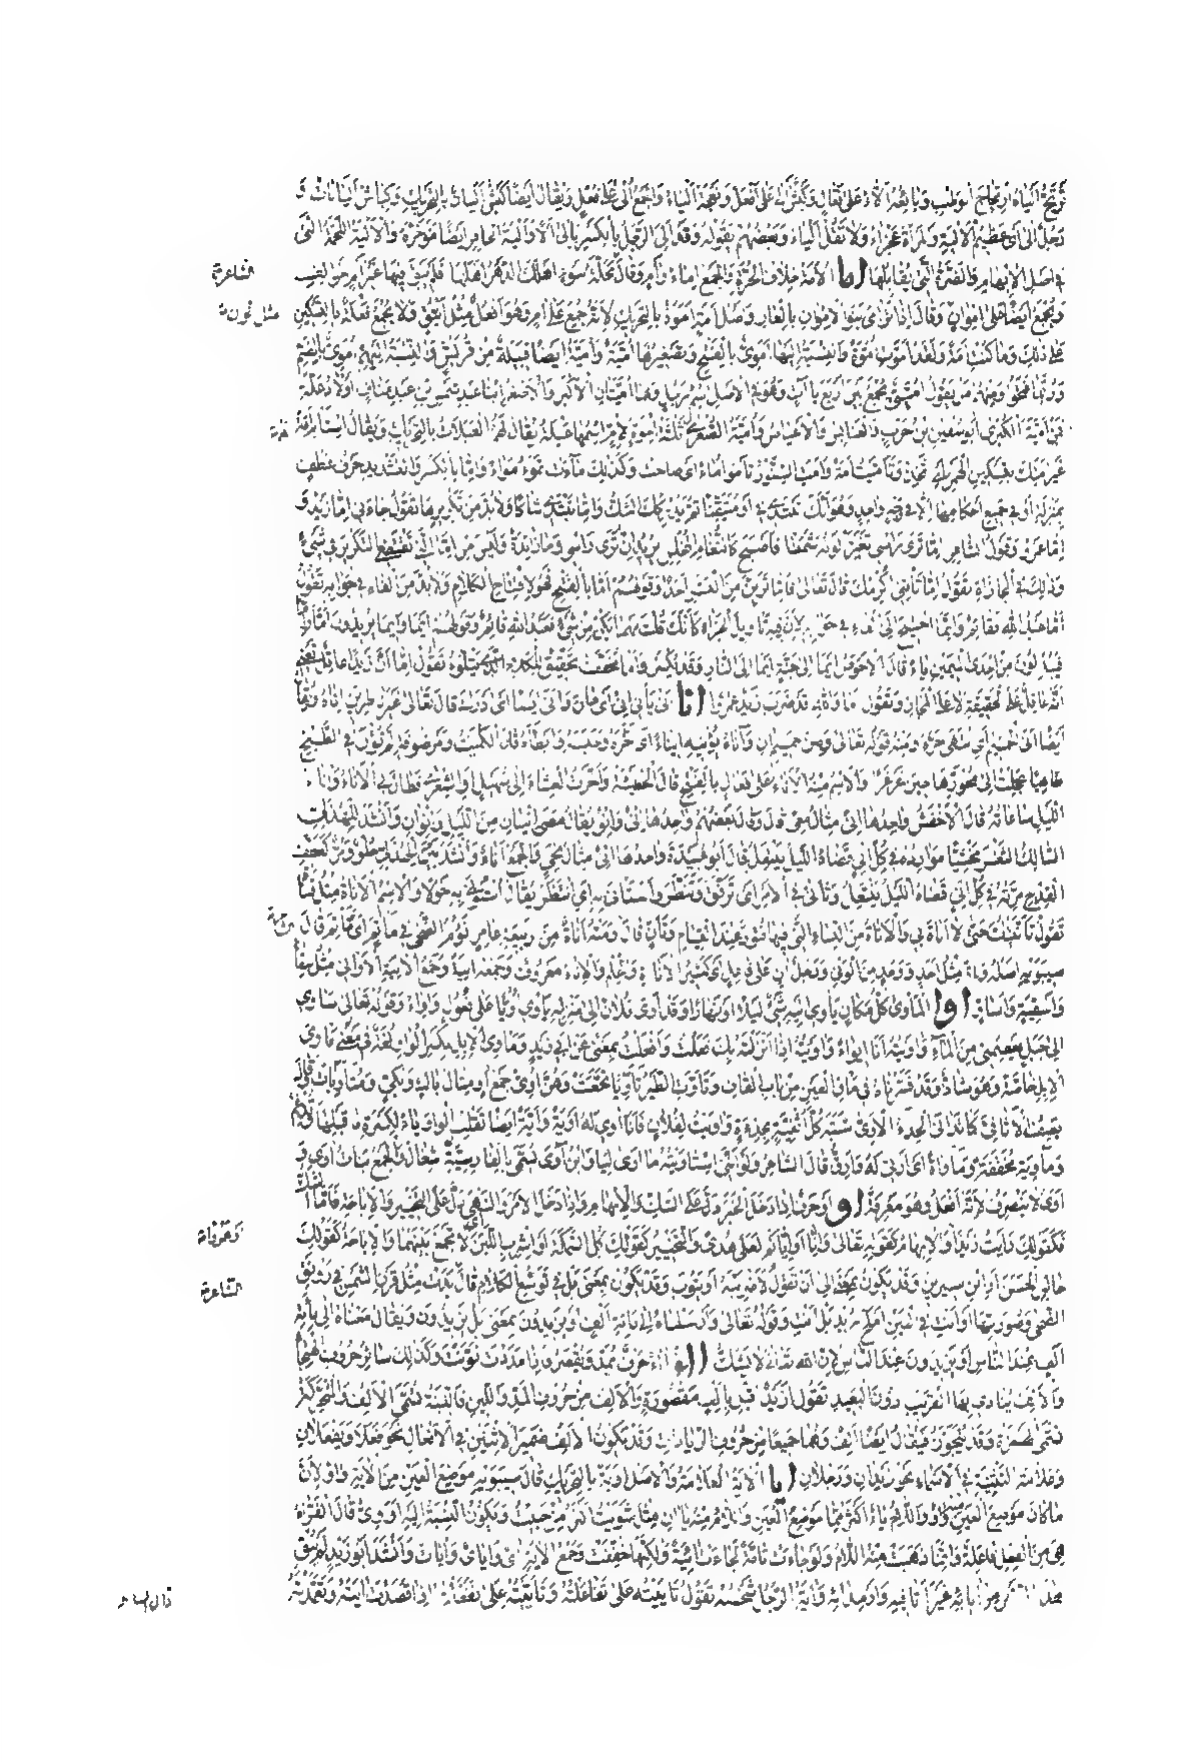 ترتج ألياه ارتجاج الوطب وبائعه ألاء على فعال وكبش آلى على أفعل ونعجة ألياء والجمع ألي على فعل ويقال أيضا كبش أليان بالتحريك وكباش أليانات و
رجل آلى أي عظيم الألية وامرأة عجزاء ولا تقل ألياء وبعضهم يقوله وقد ألي الرجل بالكسر يألى ألى وألية الحافر أيضا مؤخره والألية اللحمة التي
في أصل الإبهام والضرة التي تقابلها أما الأمة خلاف الحرة والجمع إماء وآم وقال محلة سوء أهلك الدهر أهلها فلم يبق فيها غير آم خوالف
الشاعر
وتجمع أيضا على إموان وقال إذا ترامى بنو الإموان بالعار وأصل أمة أموة بالتحريك لأنه جمع على آم وهو أفعل مثل أينق ولا يجمع فعلة بالتسكين
على ذلك وما كنت أمة ولقد أموت أموة والنسبة إليها أموي بالفتح وتصغيرها أمية وأمية أيضا قبيلة من قريش والنسبة إليهم أموي بالضم
وربما فتحوا ومنهم من يقول أميي يجمع بين أربع ياآت وهو في الأصل اسم رجل وهما أميتان الأكبر والأصغر ابنا عبد شمس بن عبد مناف أولاد علة
فمن أمية الكبرى أبو سفين بن حرب والعنابس والأعياص وأمية الصغرى ثلثة إخوة لأم اسمها عبلة يقال لهم العبلات بالتحريك ويقال استأم أمة
غير أمتك بتسكين الهمزة أي اتخذ وتأميت أمة وأمت السنور تأموا أماء أي صاحت وكذلك ماءت تموء مواء وإما بالكسر والتشديد حرف عطف
بمنزلة أو في جميع أحكامها إلا في وجه واحد وهو أنك تبتدئ في أو متيقنا ثم يدركك الشك وإما تبتدئ شاكا ولا بد من تكريرها تقول جاءني إما زيد و
إما عمرو وقول الشاعر إما تري رأسي تغير لونه شمطا فأصبح كالثغام الممحل يريد إن تري رأسي وما زائدة وليس من إما التي تقتضي التكرير في شيء
وذلك في المجازاة تقول إما تأتني أكرمك قال تعالى فإما ترين من البشر أحدا وقولهم أما بالفتح فهو لافتتاح الكلام ولا بد من الفاء في جوابه تقول
أما عبد الله فقائم وإنما احتيج إلى الفاء في جوابه لأن فيه تأويل الجزاء كأنك قلت مهما يكن من شيء فعبد الله قائم وقولهم أيما وإيما يريدون أما و
فيبدلون من إحدى الميمين ياء قال الأحوص أيما إلى جنة أيما إلى النار وقد يكسر وأما مخففة تحقيق للكلام الذي يتلوه تقول أما إن زيدا عاقل تعني
أنه عاقل على الحقيقة لا على المجاز وتقول أما والله قد ضرب زيد عمرا أنا أنى يأني إنى أي حان وأنى أيضا أي أدرك قال تعالى غير ناظرين إناه ويقال
أيضا أنى الحميم أي انتهى حره ومنه قوله تعالى وبين حميم آن وآناه يؤنيه إيناء أي أخره وحبسه وأبطأه قال الكميت ومرضوفة لم تؤن في الطبخ
طاهيا عجلت إلى محورها حين غرغرا والاسم منه الأناء على فعال بالفتح قال الحطيئة وآخرت العشاء إلى سهيل أو الشعرى فطال بي الأناء وآناء
الليل ساعاته قال الأخفش واحدها إنى مثال معى قال وقال بعضهم واحدها إني وإنو يقال مضى إنيان من الليل وإنوان وأنشد للهذلي
السالك الثغر مخشيا موارده في كل إني قضاه الليل ينتعل قال أبو عبيدة واحدها إني مثال نحي والجمع آناء وأنشد بيت الهذلي حلو ومر كعطف
القدح مرته في كل إني قضاه الليل ينتعل وتأنى في الأمر أي ترفق وتنظر واستأنى به أي انتظر يقال استؤني به حولا والاسم الأناة مثل قناة
تقول تأنيتك حتى لا أناة بي والأناة من النساء التي فيها فتور عند القيام وتأن قال رمته أناة من ربيعة عامر نؤوم الضحى في مأتم أي مأتم قال
سيبويه أصله وناة مثل أحد ووحد من الونى ورجل آن على فاعل أي كثير الأناة والحلم والإناء معروف وجمعه آنية وجمع الآنية الأواني مثل سقاء
وأسقية وأساق أوا المأوى كل مكان يأوي إليه شيء ليلا أو نهارا وقد أوى فلان إلى منزله يأوي أويا على فعول وإواء وقوله تعالى سآوي
إلى جبل يعصمني من الماء وآويته أنا إيواء وأويته إذا أنزلته بك فعلت وأفعلت بمعنى عن أبي زيد ومأوي الإبل بكسر الواو لغة في مأوى
الإبل خاصة وهو شاذ وقد فسرناه في مأقي العين من باب القاف وتأوت الطير تأويا تجمعت وهن أوي جمع آو مثال باك وبكي ومتأويات وقال
يصف الأثافي كما تدانى الحدأ الأوي شبه كل أثفية بحدأة وأويت لفلان فأنا آوي له أوية وأية أيضا تقلب الواو ياء لكسرة ما قبلها و
ومأوية مخففة ومأواة أي أرثي له وأرق قال الشاعر ولو أنني استأويته ما أوى ليا وابن آوى يسمى بالفارسية شغال والجمع بنات آوى و
آوى لا ينصرف لأنه أفعل وهو معرفة أو أو حرف إذا دخل الخبر دل على الشك والإبهام وإذا دخل الأمر والنهي دل على التخيير والإباحة فأما
فكقولك رأيت زيدا أو والإبهام كقوله تعالى وإنا أو إياكم لعلى هدى والتخيير كقولك كل السمك أو اشرب اللبن لا تجمع بينهما والإباحة كقولك
جالس الحسن أو ابن سيرين وقد يكون بمعنى إلى أن تقول لأضربنه أو يتوب وقد يكون بمعنى بل في توسع الكلام قال بدت مثل قرن الشمس في رونق
الشاعر
الضحى وصورتها أو أنت في العين أملح يريد بل أنت وقوله تعالى وأرسلناه إلى مائة ألف أو يزيدون بمعنى بل يزيدون ويقال معناه إلى مائة
ألف عند الناس أو يزيدون عند الناس لأن الله تعالى لا يشك اآ حرف يمد ويقصر فإذا مددت نونت وكذلك سائر حروف الهجاء
والألف ينادى بها القريب دون البعيد تقول أزيد أقبل بألف مقصورة والألف من حروف المد واللين فاللينة تسمى الألف والمتحركة
تسمى الهمزة وقد يتجوز فيقال أيضا ألف وهما جميعا من حروف الزيادات وقد تكون الألف ضمير الاثنين في الأفعال نحو فعلا ويفعلان
وعلامة التثنية في الأسماء نحو زيدان ورجلان أيا الآية العلامة والأصل أوية بالتحريك قال سيبويه موضع العين من الآية واو لأن
ما كان موضع العين منه واو واللام ياء أكثر مما موضع العين واللام منه ياآن مثل شويت أكثر من حييت وتكون النسبة إليه أووي قال الفراء
هي من الفعل فاعلة وإنما ذهبت منه اللام ولو جاءت تامة لجاءت آيية ولكنها خففت وجمع الآية آي وآياي وآيات وأنشد أبو زيد لم يبق
هذا الدهر من آيائه غير أثافيه وأرمدائه وآية الرجل شخصه تقول تآييته على تفاعلته وتأييته على تفعلته إذا قصدت آيته وتعمدته
قال الشاعر